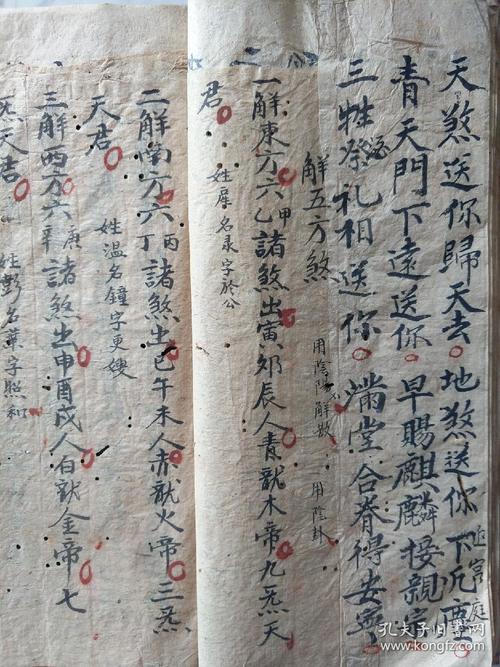 天煞送你歸天去。地煞送你下凡塵。
青天門下遠送你。早賜麒麟接親宮庭
三牲祭礼相送你。滿堂合眷得安寧。
解五方煞 用陰陽解散 用陰卦
一解東方六甲乙諸煞出寅夘辰人青龍木帝九炁天
君 姓 名 字於公
二解南方六丙丁諸煞出巳午未人赤龍火帝三炁
天君 姓溫名鐘字更
三解西方六庚辛諸煞出申酉戌人白龍金帝七
炁天君 姓彭名 字照和
孔夫子旧书网
kongfz.com